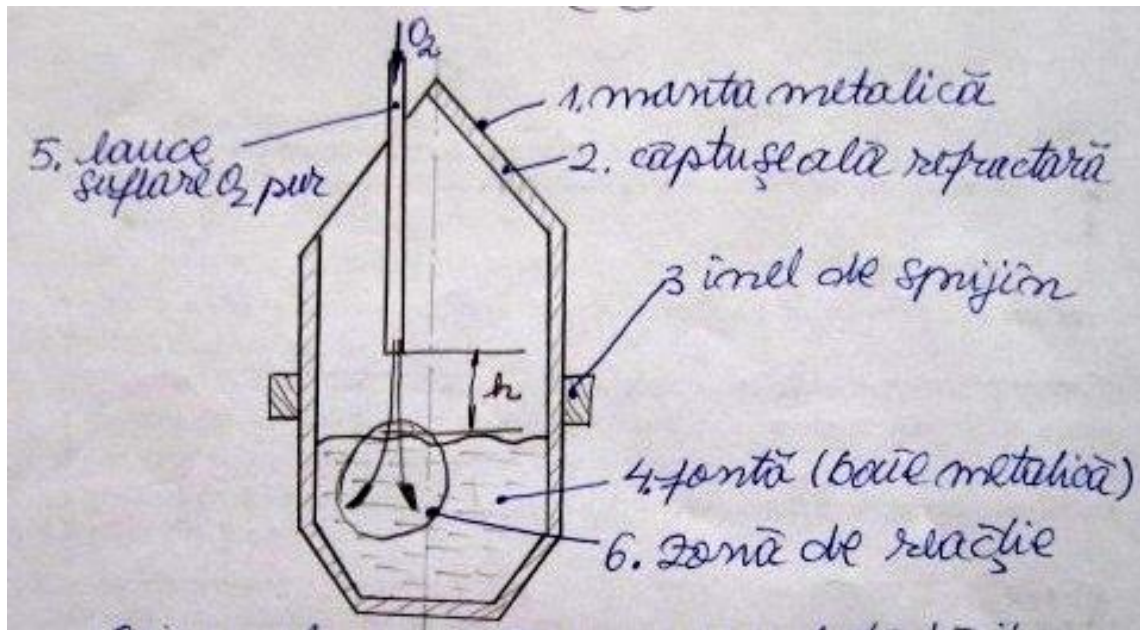 O₂
1. manta metalică
2. căptușeală refractară
5. lance
suflare O₂ pur
3 inel de sprijin
h
4. fontă (baie metalică)
6. zonă de reacție